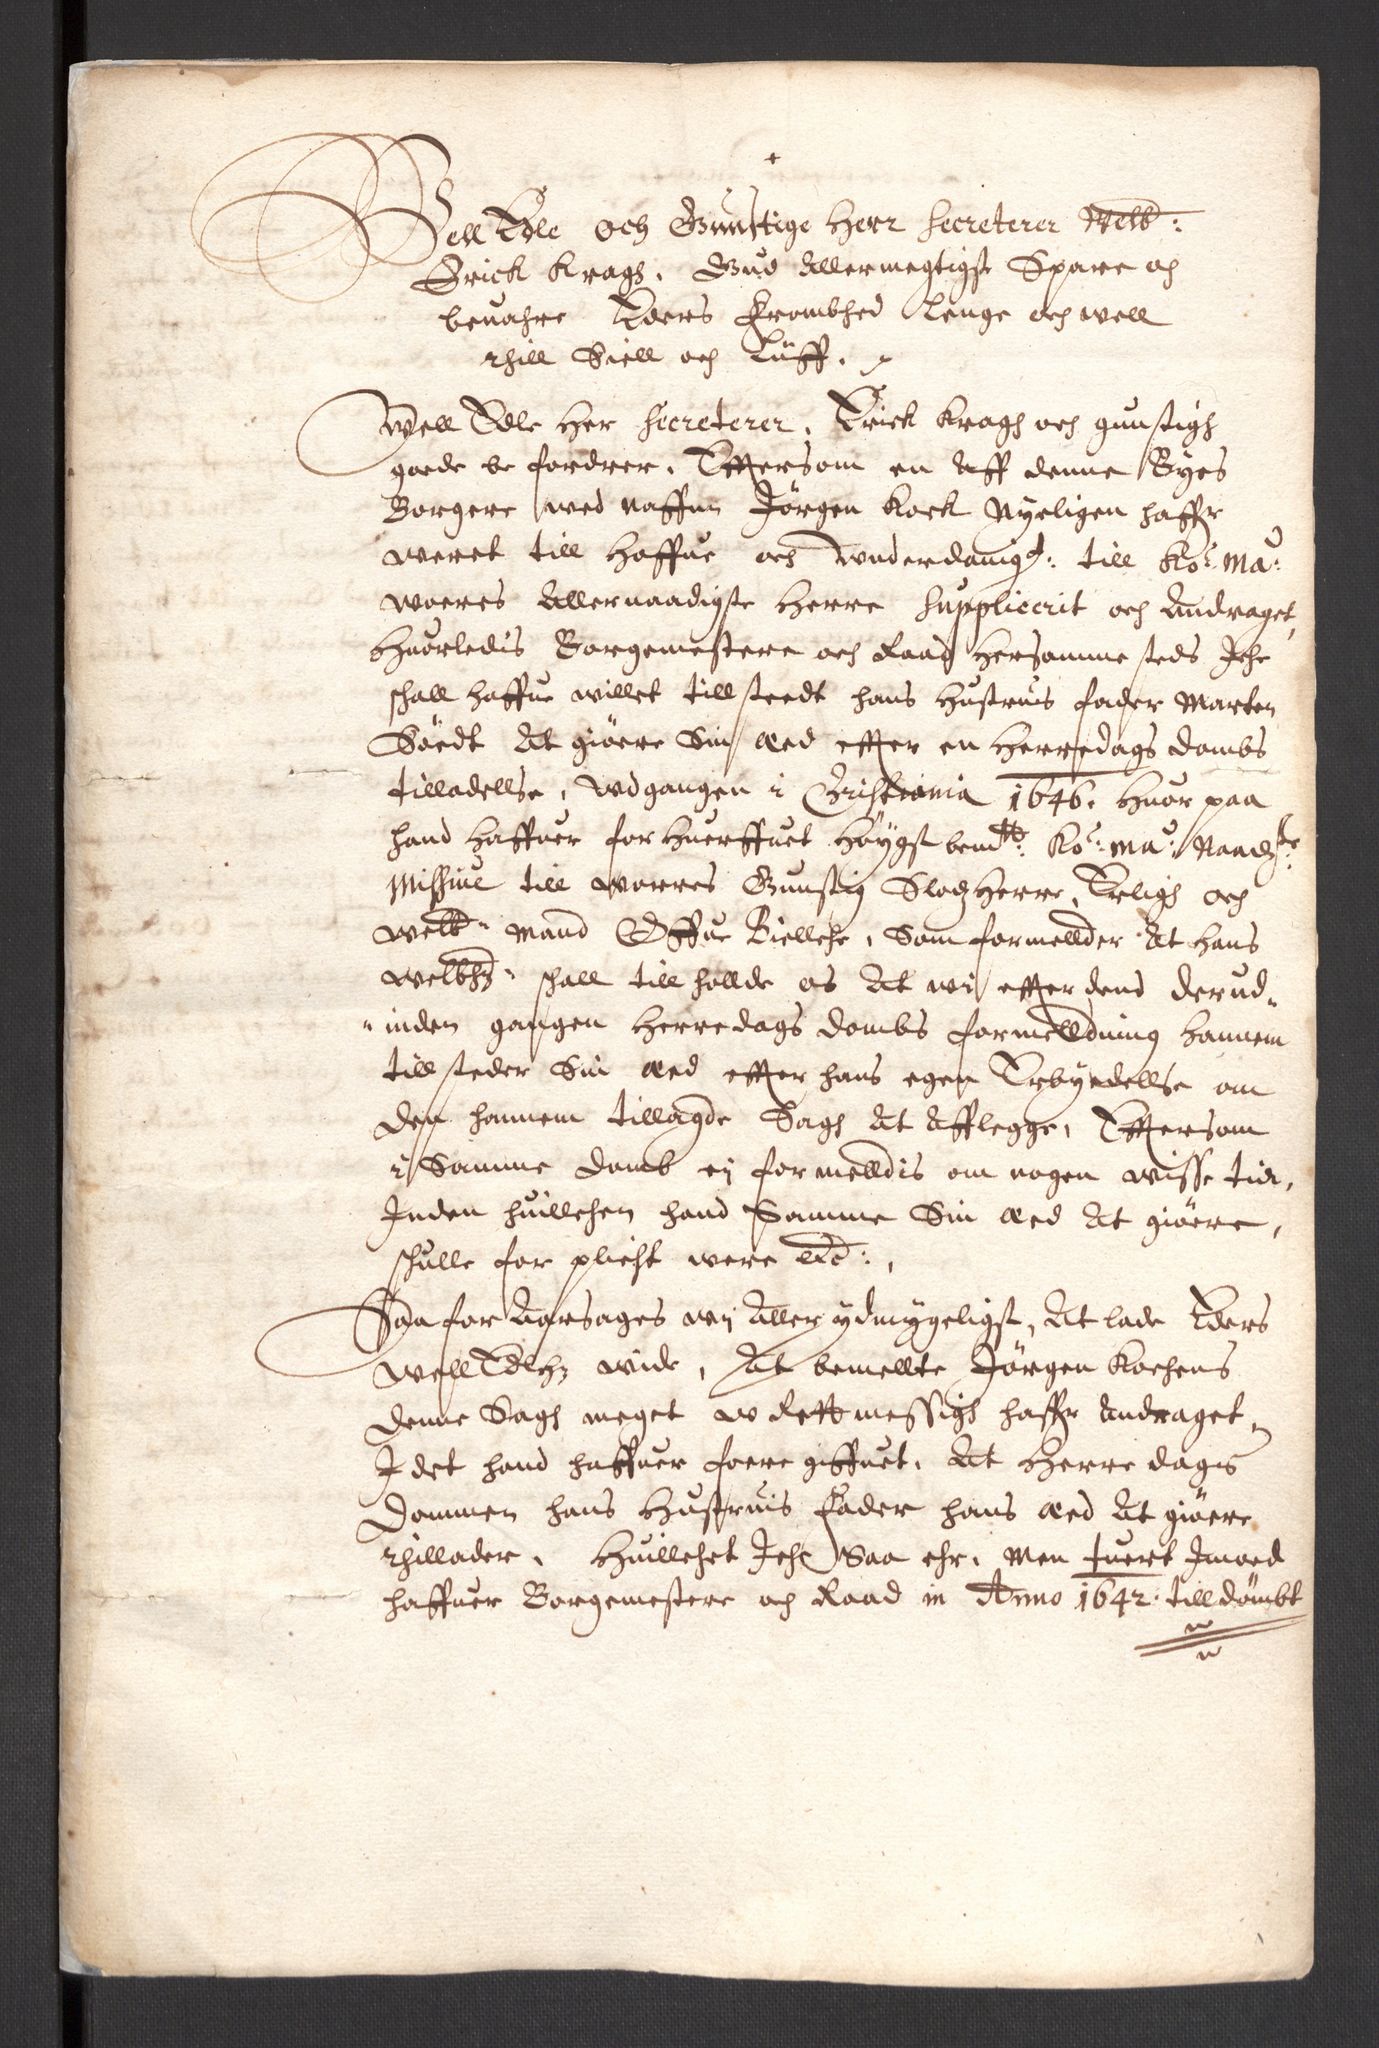 Well Edle och Gunstige Herr Secreterer Welb:
Erick Kragh. Gud Allermegtigst Spare och
beuahre Eders Frombhed Lenge och well
thill Siell och Liiff.
Well Edle Her Secreterer, Erick Kragh och gunstigh
goede befordrer, Effersom en Aff denne Byes
Borgere wed naffun Jörgen Kock Nyeligen haffr
weret till Haffue och wnderdanigst: till Ko: Ma:
woeres Allernaadigste Herre Supplicerit och Andraget,
Huorledis Borgemestere och Raad hersamme steds Iche
schall haffue willet tillstedt hans Hustruis Fader Marten
Söedt At giöere Sin æd effter en Herredags dombs
tilladellse, wdgangen i Christiania 1646. Huor paa
hand haffuer forhuerffuet Höygstbemte: Ko: Ma: Naadste:
Missiue till worres Gunstig Slodzherre, Erligh och
welb: Mand Offue Bielche, Som formellder At hans
welbhz: schall tillhollde os At wi effter dend derud-
-inden gangen Herredags dombs formelldning hannem
tillsteder Sin æd effter hans egen Erbyudellse om
den hannem tillagde Sagh At Afflegge, Effersom
i Samme domb ej formelldis om nogen wisse tid,
Inden huillchen hand Samme Sin æd At giöere,
schulle forplicht were etc:,
Saa forAarsages wij Aller ydmygeligst, At lade Eders
WellEdlhz wide, At bemellte Jörgen Kochens
denne Sagh meget wRettmessigh haffr Andraget,
I det hand haffuer foeregiffuet, At Herredags
Dommen hans Hustruis Fader hans æd At giöere
thillader, Huillchet Iche Saa ehr, Men tuert Imoed
haffuer Borgemestere och Raad in Anno 1642. tilldömbt